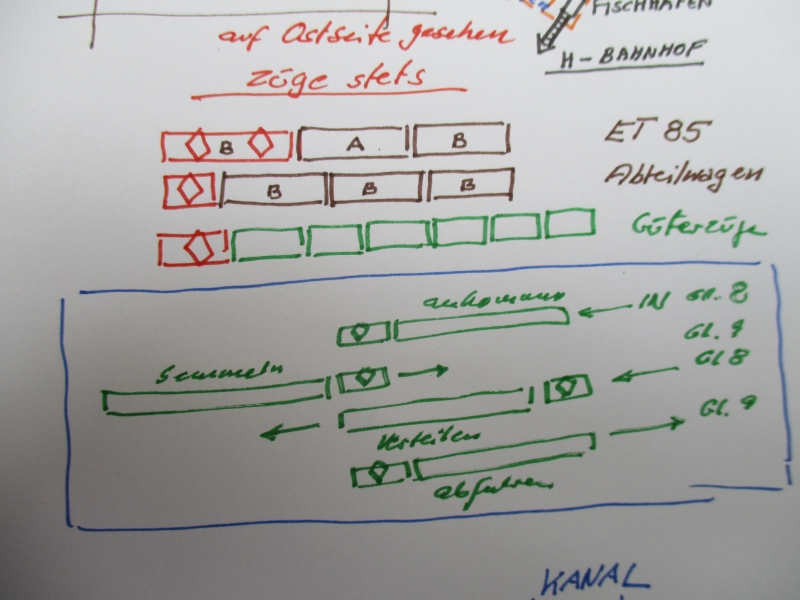 FISCHHAFEN
H-BAHNHOF
auf Ostseite gesehen
Züge stets
B A B ET 85
B B B Abteilwagen
Güterzüge
ankommen IN Gl. 8
Gl. 9
Sammeln Gl 8
Verteilen Gl. 9
abfahren
KANAL